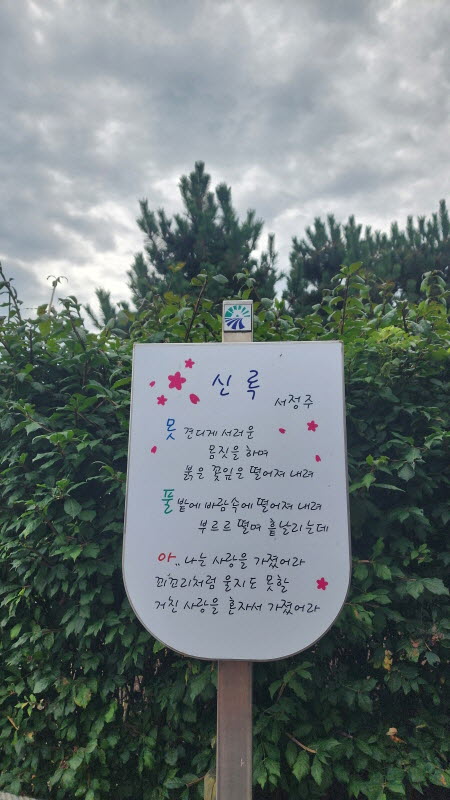 신록
서정주
못 견디게 서러운
몸짓을 하며
붉은 꽃잎은 떨어져 내려
풀밭에 바람속에 떨어져 내려
부르르 떨며 흩날리는데
아.. 나는 사랑을 가졌어라
꾀꼬리처럼 울지도 못할
거친 사랑을 혼자서 가졌어라